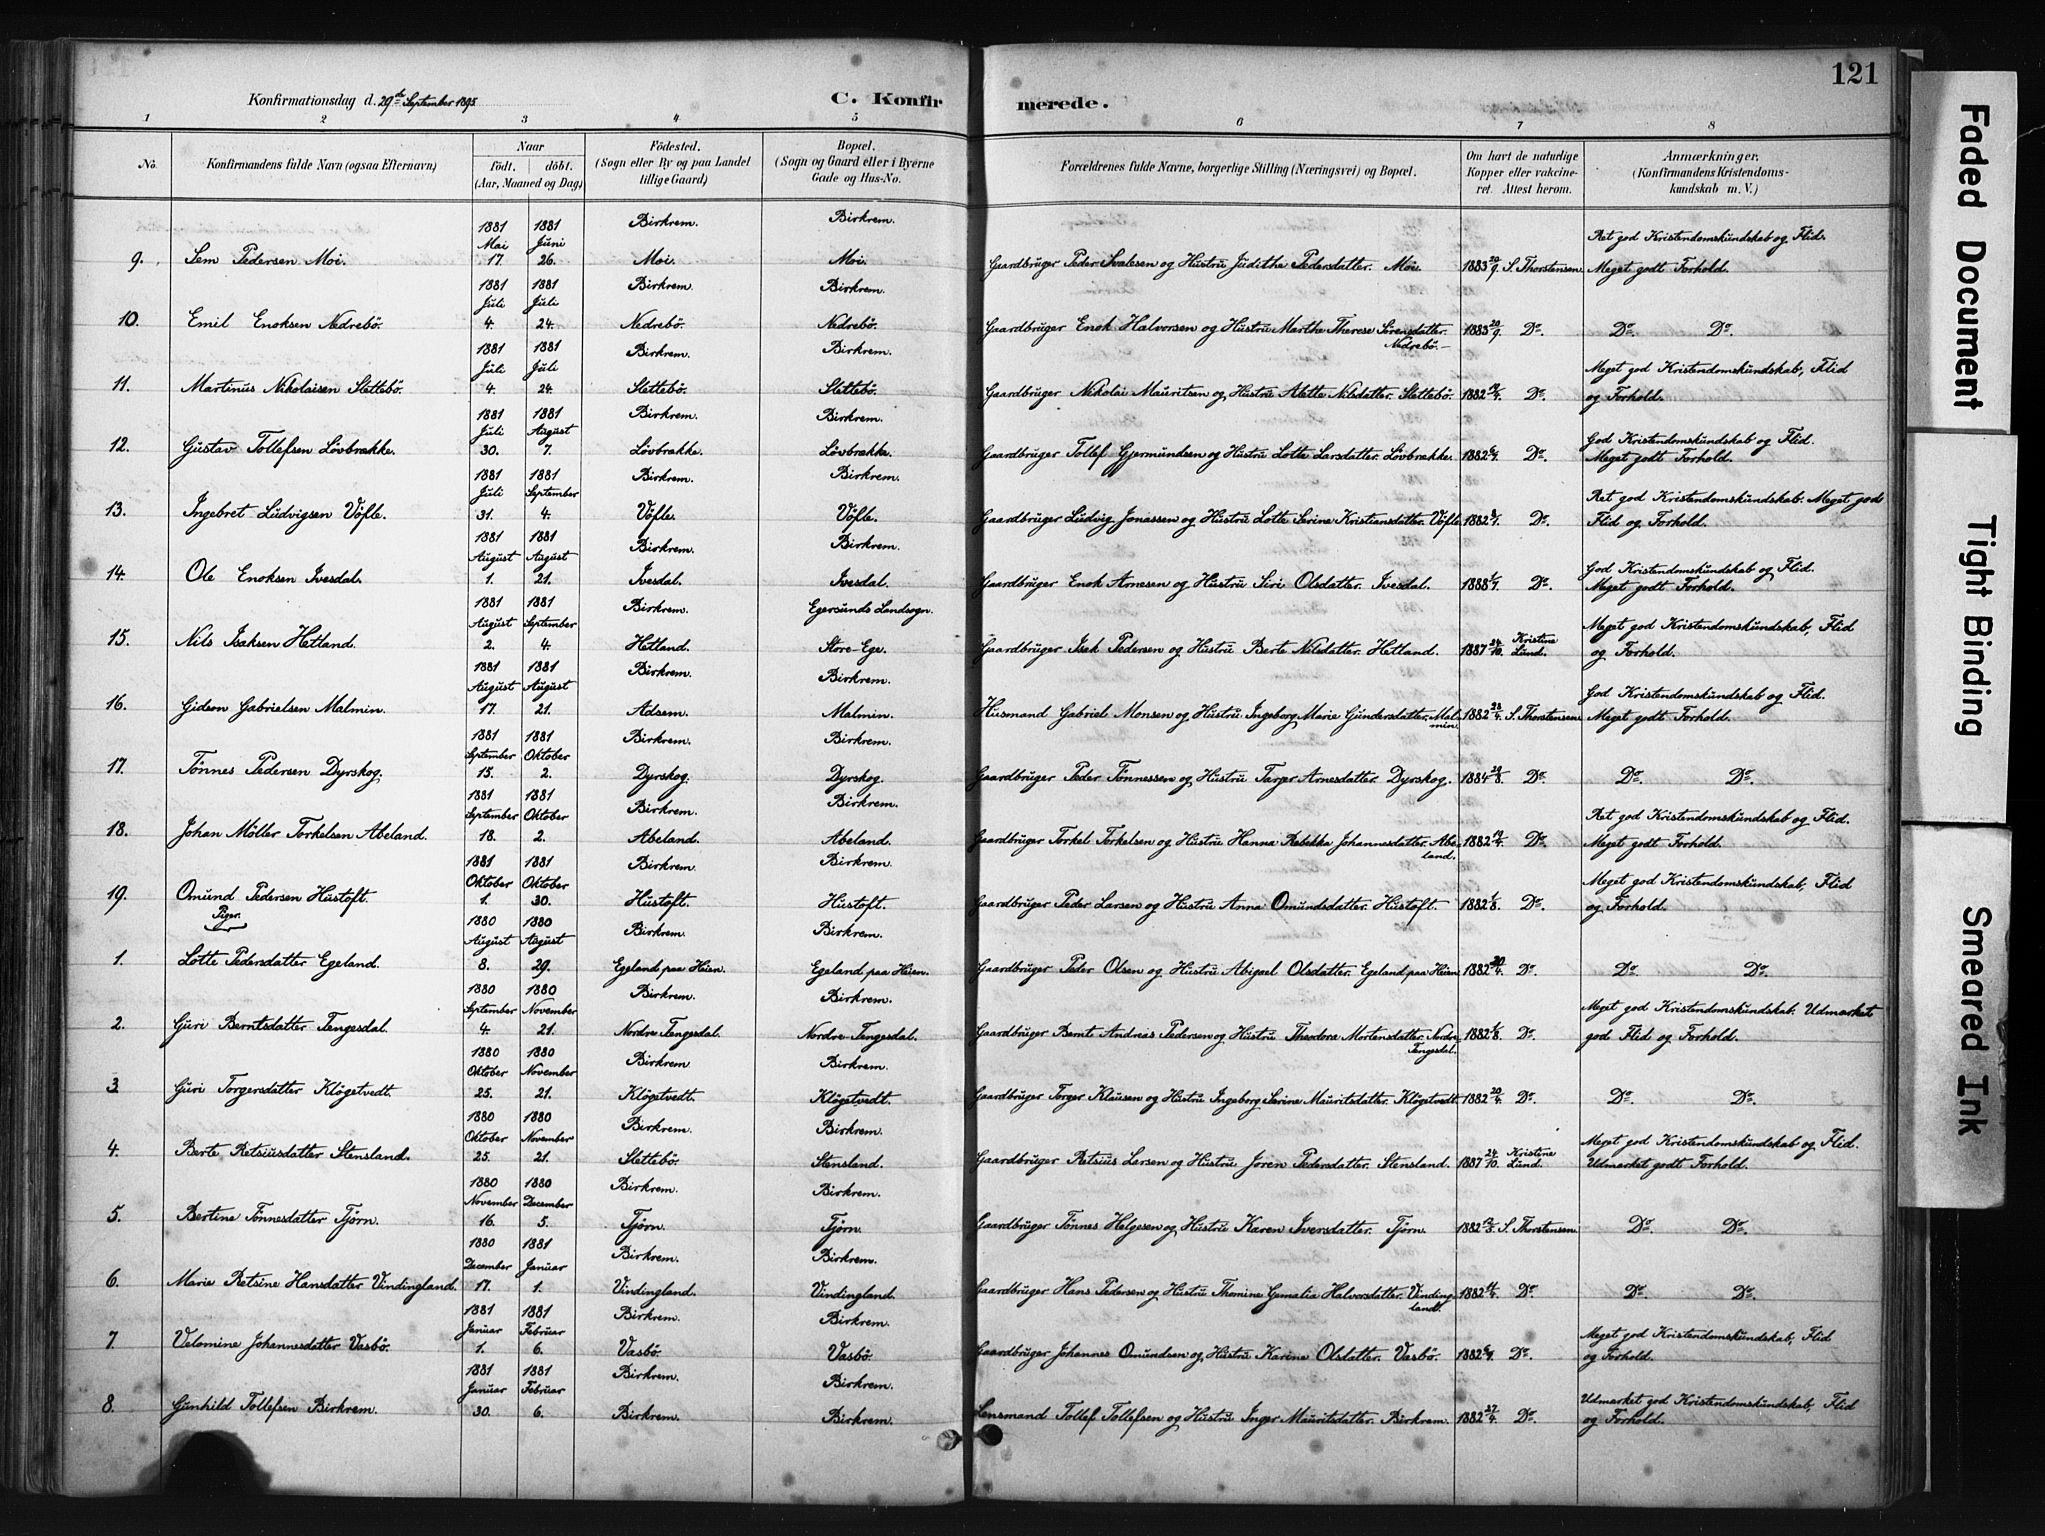 121
Konfirmationsdag d. 29de September 1895
C. Konfirmerede.
1 2 3 4 5 6 7 8
No. Konfirmandens fulde Navn (ogsaa Efternavn) Naar født. døbt. (Aar, Maaned og Dag) Fødested. (Sogn eller By og paa Landet tillige Gaard) Bopæl. (Sogn og Gaard eller i Byerne Gade og Hus-No. Forældrenes fulde Navne, borgerlige Stilling (Næringsvei) og Bopæl. Om havt de naturlige Kopper eller vakcineret. Attest herom. Anmærkninger. (Konfirmandens Kristendomskundskab m. V.)
9. Sem Pedersen Moi. 1881 Mai 17. 1881 Juni 26. Birkrem. Moi. Birkrem. Moi. Gaardbruger Peder Svalesen og Hustru Judithe Pedersdatter. Moi. 1883 20/9. S. Thorstensen. Ret god Kristendomskundskab og Flid. Meget godt Forhold.
10. Emil Enoksen Nedrebö. 1881 Juli 4. 1881 Juli 24. Birkrem. Nedrebö. Birkrem. Nedrebö. Gaardbruger Enok Halvorsen og Hustru Marthe Therese Sörensdatter. Nedrebö. 1883 20/9. Do. Do. Do.
11. Martinus Nikolaisen Slettebö. 1881 Juli 4. 1881 Juli 24. Birkrem. Slettebö. Birkrem. Slettebö. Gaardbruger Nikolai Mauritsen og Hustru Alette Nilsdatter. Slettebö. 1882 Do. Meget god Kristendomskundskab, Flid og Forhold.
12. Gustav Tollefsen Lövbrække. 1881 Juli 30. 1881 August 7. Birkrem. Lövbrække. Birkrem. Lövbrække. Gaardbruger Tollef Gjermundsen og Hustru Lotte Larsdatter. Lövbrække. 1882 Do. God Kristendomskundskab og Flid. Meget godt Forhold.
13. Ingebret Ludvigsen Vöfle. 1881 Juli 31. 1881 September 4. Birkrem. Vöfle. Birkrem. Vöfle. Gaardbruger Ludvig Jonassen og Hustru Lotte Serine Kristiansdatter. Vöfle. 1882 Do. Ret god Kristendomskundskab. Meget god Flid og Forhold.
14. Ole Enoksen Ivesdal. 1881 August 1. 1881 August 21. Birkrem. Ivesdal. Birkrem. Ivesdal. Gaardbruger Enok Arnesen og Hustru Siri Olsdatter. Ivesdal. 1888 Do. God Kristendomskundskab og Flid. Meget godt Forhold.
15. Nils Isaksen Hetland. 1881 August 2. 1881 September 4. Birkrem. Hetland. Egersunds Landsogn. Store-Ege. Gaardbruger Isak Pedersen og Hustru Berte Nilsdatter. Hetland. 1887 24/10. Kristine Lund. Meget god Kristendomskundskab, Flid og Forhold.
16. Gideon Gabrielsen Malmin. 1881 August 17. 1881 August 21. Birkrem. Adsem. Birkrem. Malmin. Husmand Gabriel Monsen og Hustru Ingeborg Marie Gundersdatter. Malmin. 1882 S. Thorstensen. God Kristendomskundskab og Flid. Meget godt Forhold.
17. Tönnes Pedersen Dyrskog. 1881 September 15. 1881 Oktober 2. Birkrem. Dyrskog. Birkrem. Dyrskog. Gaardbruger Peder Tönnessen og Hustru Targer Arnesdatter. Dyrskog. 1884 Do. Do. Do.
18. Johan Möller Torkelsen Abeland. 1881 September 18. 1881 Oktober 2. Birkrem. Abeland. Birkrem. Abeland. Gaardbruger Torkel Torkelsen og Hustru Hanna Rebekka Johannesdatter. Abeland. 1882 19/4. Do. Ret god Kristendomskundskab og Flid. Meget godt Forhold.
19. Omund Pedersen Hustoft. 1881 Oktober 1. 1881 Oktober 30. Birkrem. Hustoft. Birkrem. Hustoft. Gaardbruger Peder Larsen og Hustru Anna Omundsdatter. Hustoft. 1882 1/8. Do. Meget god Kristendomskundskab, Flid og Forhold.
Piger.
1. Lotte Pedersdatter Egeland. 1880 August 8. 1880 August 29. Birkrem. Egeland paa Heien. Birkrem. Egeland paa Heien. Gaardbruger Peder Olsen og Hustru Abigael Olsdatter. Egeland paa Heien. 1882 20/4. Do. Do. Do.
2. Guri Berntsdatter Tengesdal. 1880 September 4. 1880 November 21. Birkrem. Nordre-Tengesdal. Birkrem. Nordre-Tengesdal. Gaardbruger Bernt Andreas Pedersen og Hustru Theodora Mortensdatter. Nordre Tengesdal. 1882 1/8. Do. Meget god Kristendomskundskab. Udmærket god Flid og Forhold.
3. Guri Torgersdatter Klögetvedt. 1880 Oktober 25. 1880 November 21. Birkrem. Klögetvedt. Birkrem. Klögetvedt. Gaardbruger Torger Klausen og Hustru Ingeborg Serine Mauritsdatter. Klögetvedt. 1882 20/4. Do. Do. Do.
4. Berte Retsiusdatter Stensland. 1880 Oktober 25. 1880 November 21. Birkrem. Slettebö. Birkrem. Stensland. Gaardbruger Retsius Larsen og Hustru Joren Pedersdatter. Stensland. 1887 24/10. Kristine Lund. Meget god Kristendomskundskab og Flid. Udmærket godt Forhold.
5. Bertine Tönnesdatter Tjörn. 1880 November 16. 1880 December 5. Birkrem. Tjörn. Birkrem. Tjörn. Gaardbruger Tönnes Helgesen og Hustru Karen Iversdatter. Tjörn. 1882 S. Thorstensen. Do. Do.
6. Marie Retsine Hansdatter Vindingland. 1880 December 17. 1881 Januar 1. Birkrem. Vindingland. Birkrem. Vindingland. Gaardbruger Hans Pedersen og Hustru Thomine Gemalie Halvorsdatter. Vindingland. 1882 Do. Do. Do.
7. Velomine Johannesdatter Vasbö. 1881 Januar 1. 1881 Februar 6. Birkrem. Vasbö. Birkrem. Vasbö. Gaardbruger Johannes Omundsen og Hustru Karine Olsdatter. Vasbö. 1882 Do. Meget god Kristendomskundskab, Flid og Forhold.
8. Gunhild Tollefsen Birkrem. 1881 Januar 30. 1881 Februar 6. Birkrem. Birkrem. Birkrem. Birkrem. Lensmand Tollef Tollefsen og Hustru Inger Mauritsdatter. Birkrem. 1882 27/4. Do. Udmærket god Kristendomskundskab, Flid og Forhold.
Faded Document
Tight Binding
Smeared Ink